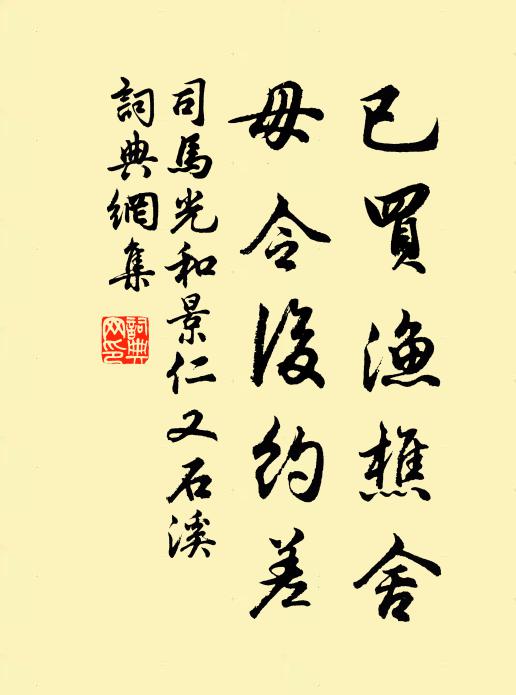 已買漁樵舍
毋令後約差
司馬光和景仁又石溪
詞典網集
詞典
网印